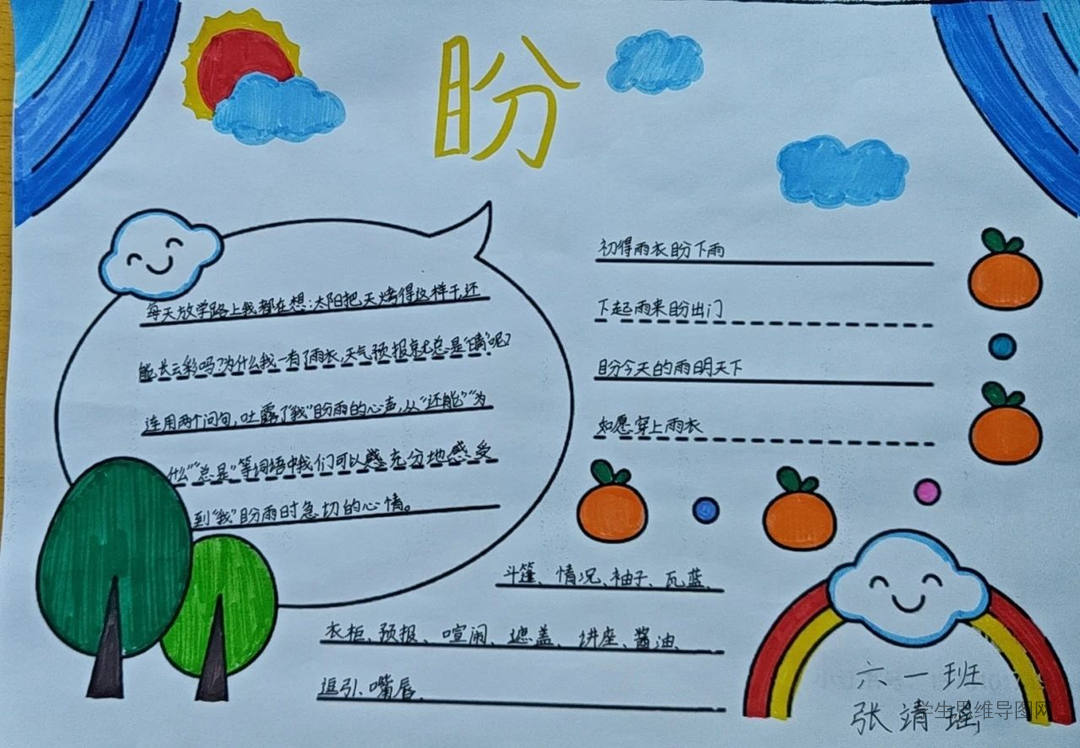 盼
每天放学路上我都在想:太阳把天烤得这样干,还
能长云彩吗?为什么我一有了雨衣,天气预报就总是“晴”呢?
连用两个问句,吐露了“我”盼雨的心声,从“还能”“为
什么”“总是”等词语中我们可以感充分地感受
到“我”盼雨时急切的心情。
初得雨衣盼下雨
下起雨来盼出门
盼今天的雨明天下
如愿穿上雨衣
斗篷、情况、袖子、瓦蓝、
衣柜、预报、喧闹、遮盖、讲座、酱油、
逗引、嘴唇、
六一班
张靖瑶
学生思维导图网